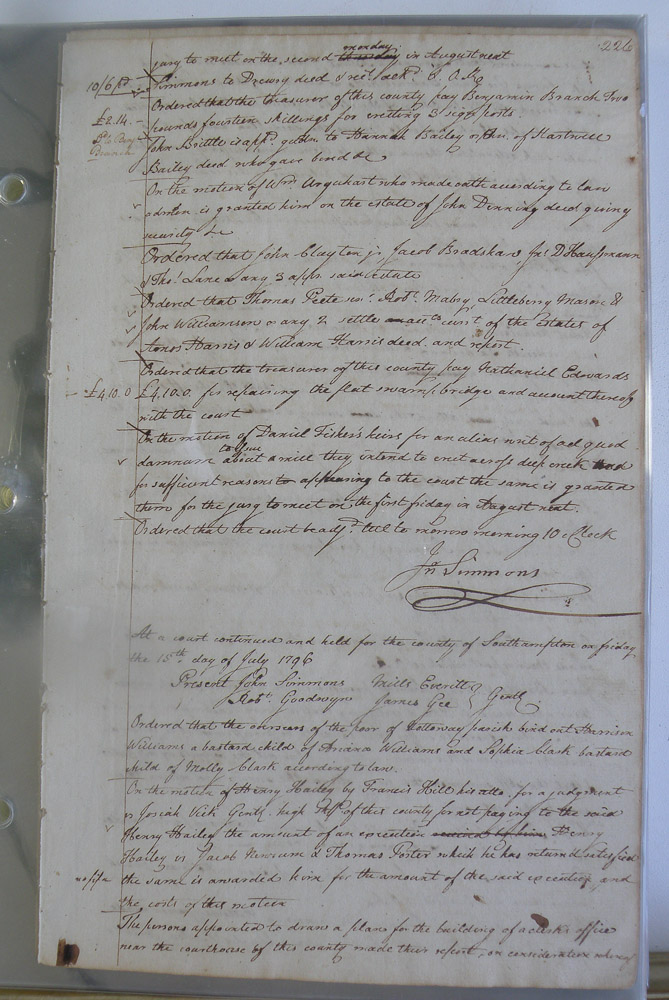 226
jury to meet on the second monday in August next
10/6 pd Simmons to Drewry deed & rect. ackd. & O.R.
Ordered that the treasurer of this county pay Benjamin Branch Two
£2.14. pounds fourteen shillings for erecting 3 sign posts.
John Brittle is appd. guardn. to Hannah Bailey orphn. of Hartwell
Branch
Bailey deed. who gave bond &c
On the motion of Wm. Urquhart who made oath according to law
admtn. is granted him on the estate of John Denning deed. giving
security &c
Ordered that John Clayton jr. Jacob Bradshaw Jno. D Haussmann
& Thos. Lane or any 3 appr. said Estate
Ordered that Thomas Peete senr. Robt. Mabry, Littleberry Mason &
John Williamson or any 2 settle accts. curt. of the Estates of
Amos Harris & William Harris deed. and report.
Ordered that the treasurer of this county pay Nathaniel Edwards
£4.10.0 £4.10.0. for repairing the flat swamp bridge and account thereof
with the court
On the motion of Daniel Fisher's heirs for an alias writ of ad quod
damnum to issue about a mill they intend to erect across deep creek
for sufficient reasons appearing to the court the same is granted
them for the jury to meet on the first friday in August next.
Ordered that the court be adjd. till to morrow morning 10 oClock
Jn Simmons
At a court continued and held for the county of Southampton on friday
the 15th. day of July 1796
Present John Simmons Mills Everitt
Robt. Goodwyn James Gee Gentl.
Ordered that the overseers of the poor of Nottoway parish bind out Harrison
Williams a bastard child of Williams and Sophia Clark bastard
child of Molly Clark according to law.
On the motion of Henry Hailey by Francis Hill his atto. for a judgment
vs Josiah Vick Gentl. high Shff. of this county for not paying to the said
Henry Hailey the amount of an execution Henry
Hailey vs Jacob Newsum & Thomas Porter which he has returned satisfied
the same is awarded him for the amount of the said execution and
the costs of this motion
The persons appointed to draw a plan for the building of a clerks office
near the courthouse of this county made their report, on consideration whereof